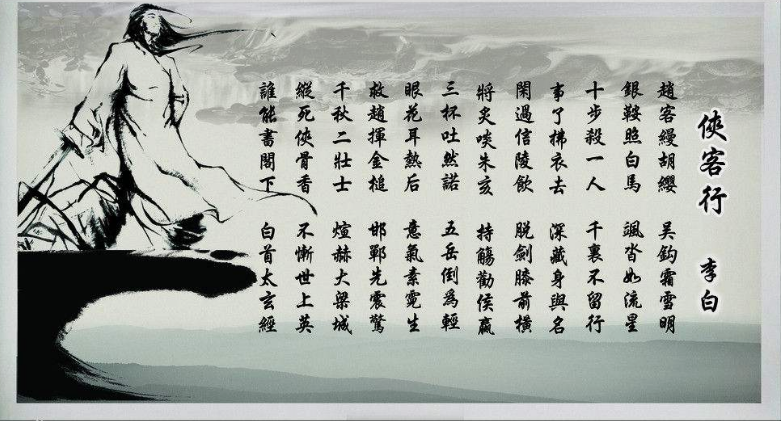 俠客行 李白
趙客縵胡纓 吴鈎霜雪明
銀鞍照白馬 颯沓如流星
十步殺一人 千裏不留行
事了拂衣去 深藏身與名
閑過信陵飲 脫劍膝前橫
將炙啖朱亥 持觴勸侯嬴
三杯吐然諾 五岳倒爲輕
眼花耳熱后 意氣素霓生
救趙揮金槌 邯鄲先震驚
千秋二壯士 煊赫大梁城
縱死俠骨香 不慚世上英
誰能書閣下 白首太玄經